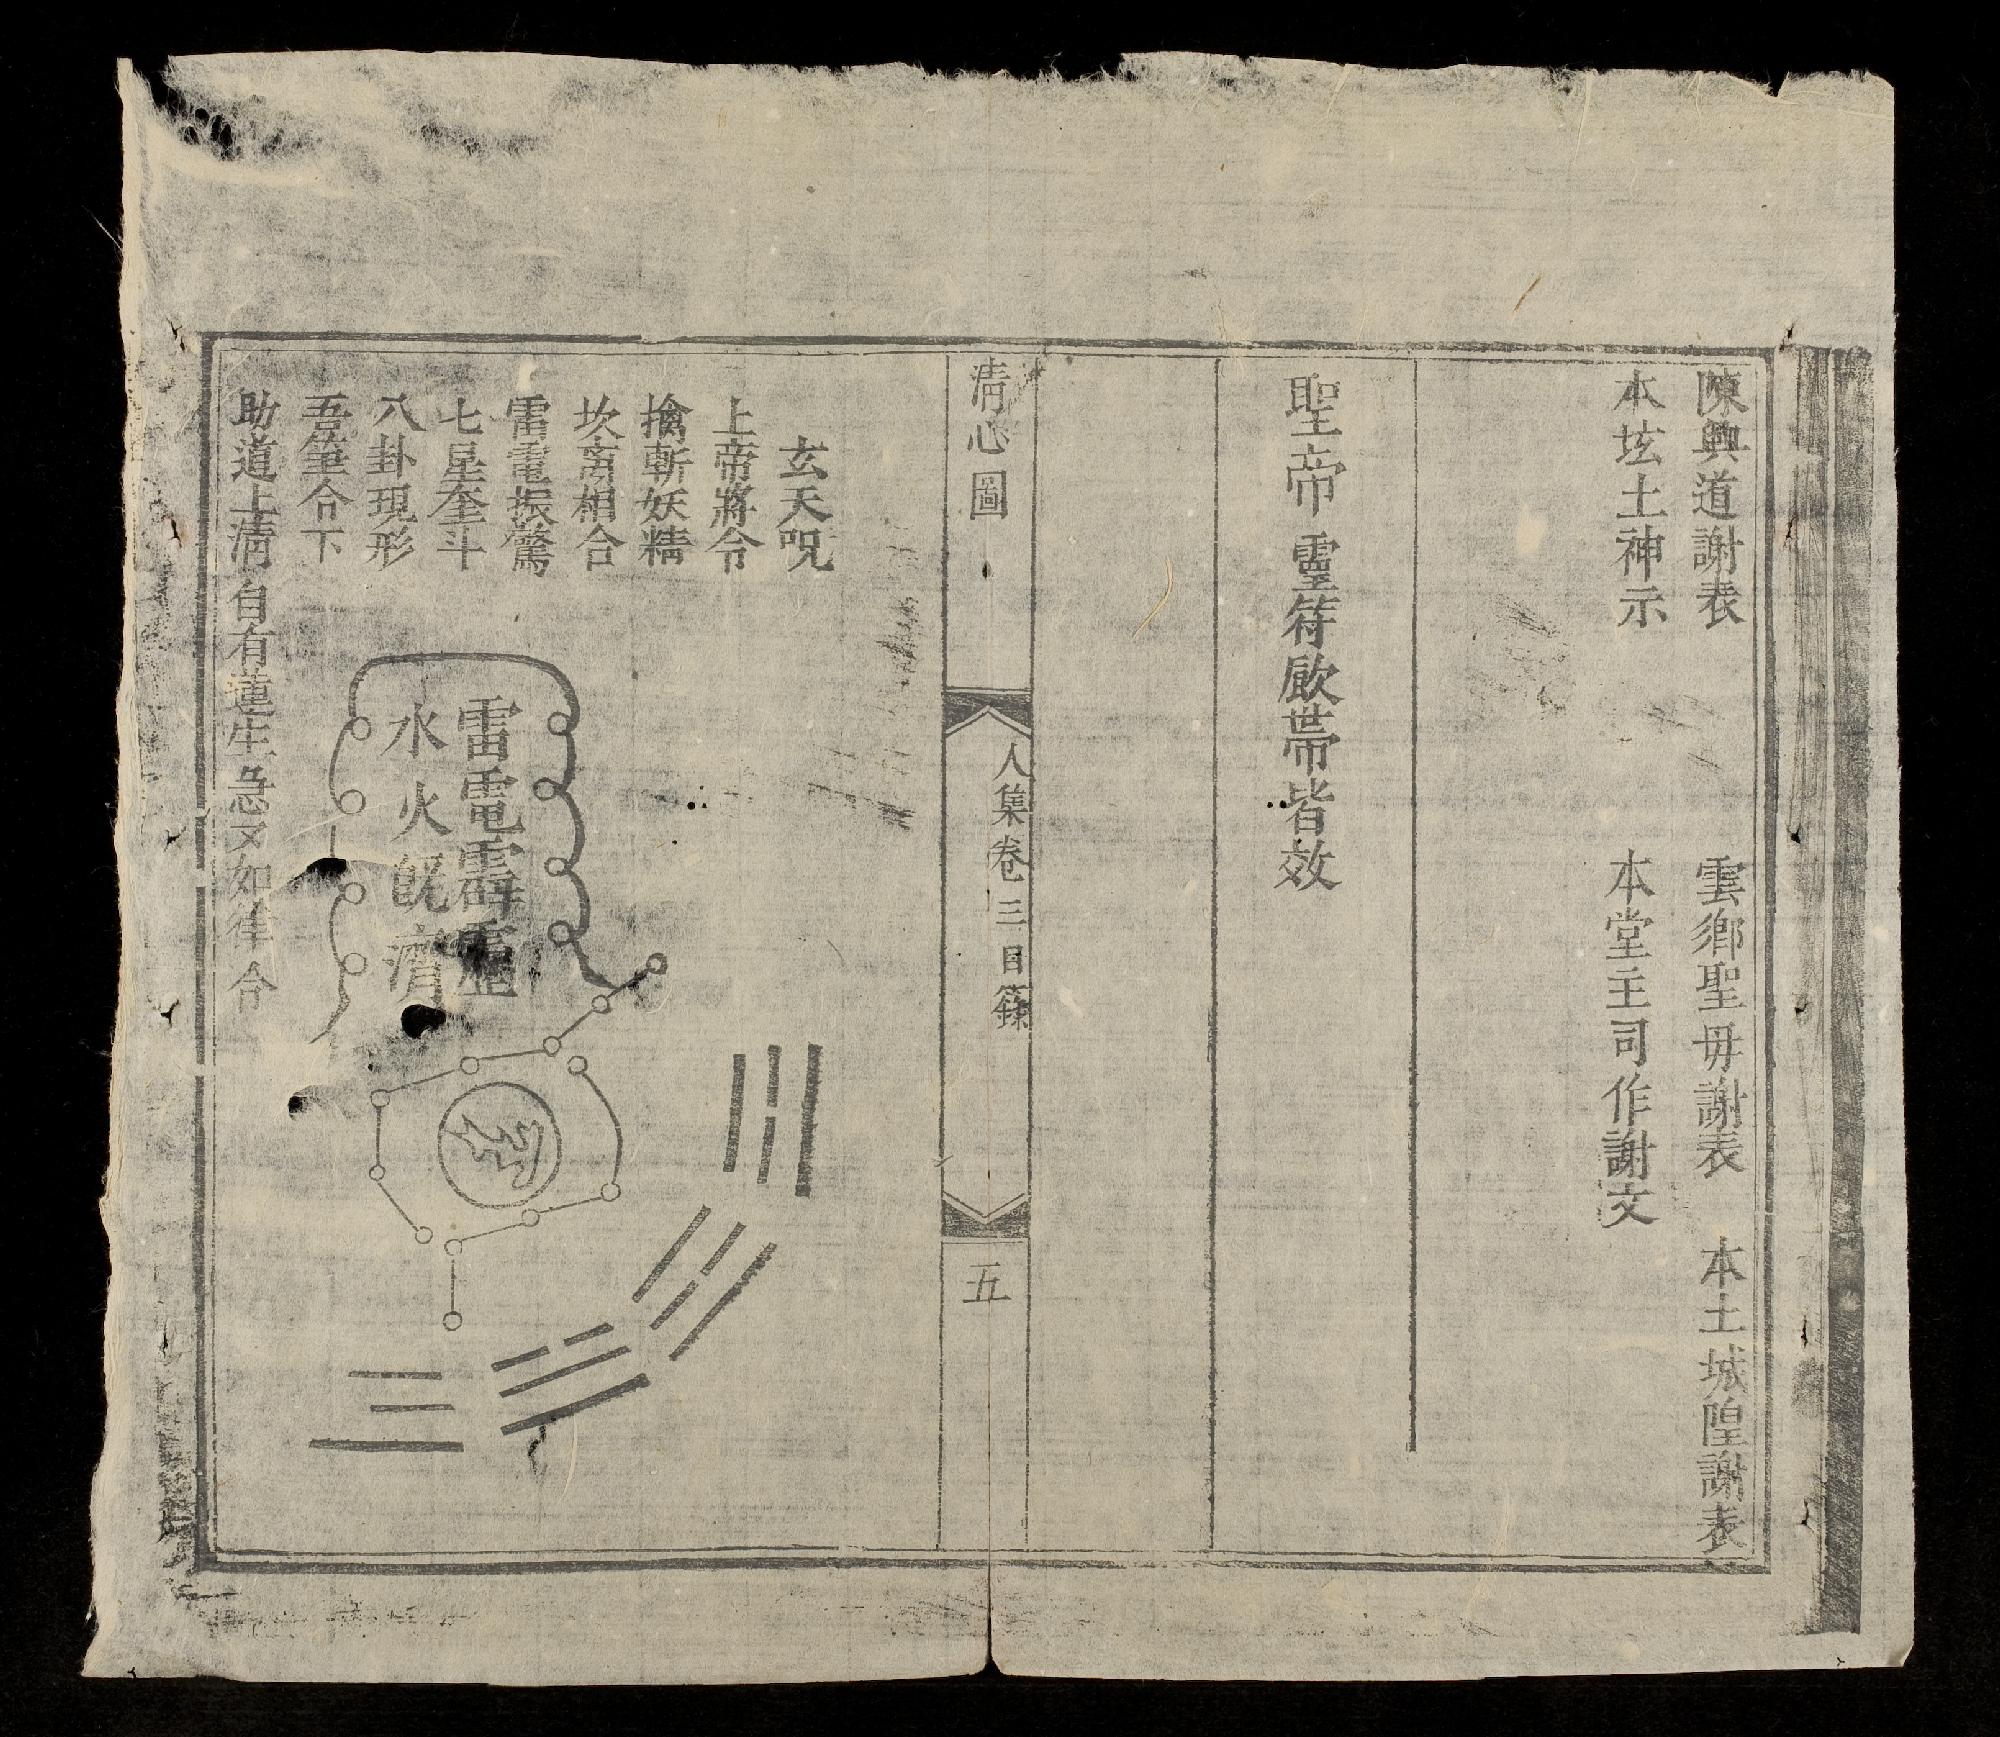 陳興道謝表 雲鄉聖毋謝表 本土城隍謝表
本境土神示 本堂主司作謝文
聖帝靈符歃帶皆效
清心圖 人集卷三目錄 五
玄天呪
上帝將令
擒斬妖精
坎离相合
雷電振驚
七星奎斗
八卦現形
吾筆令下
助道上清自有蓮生急又如律令
雷電霹靂
水火既濟